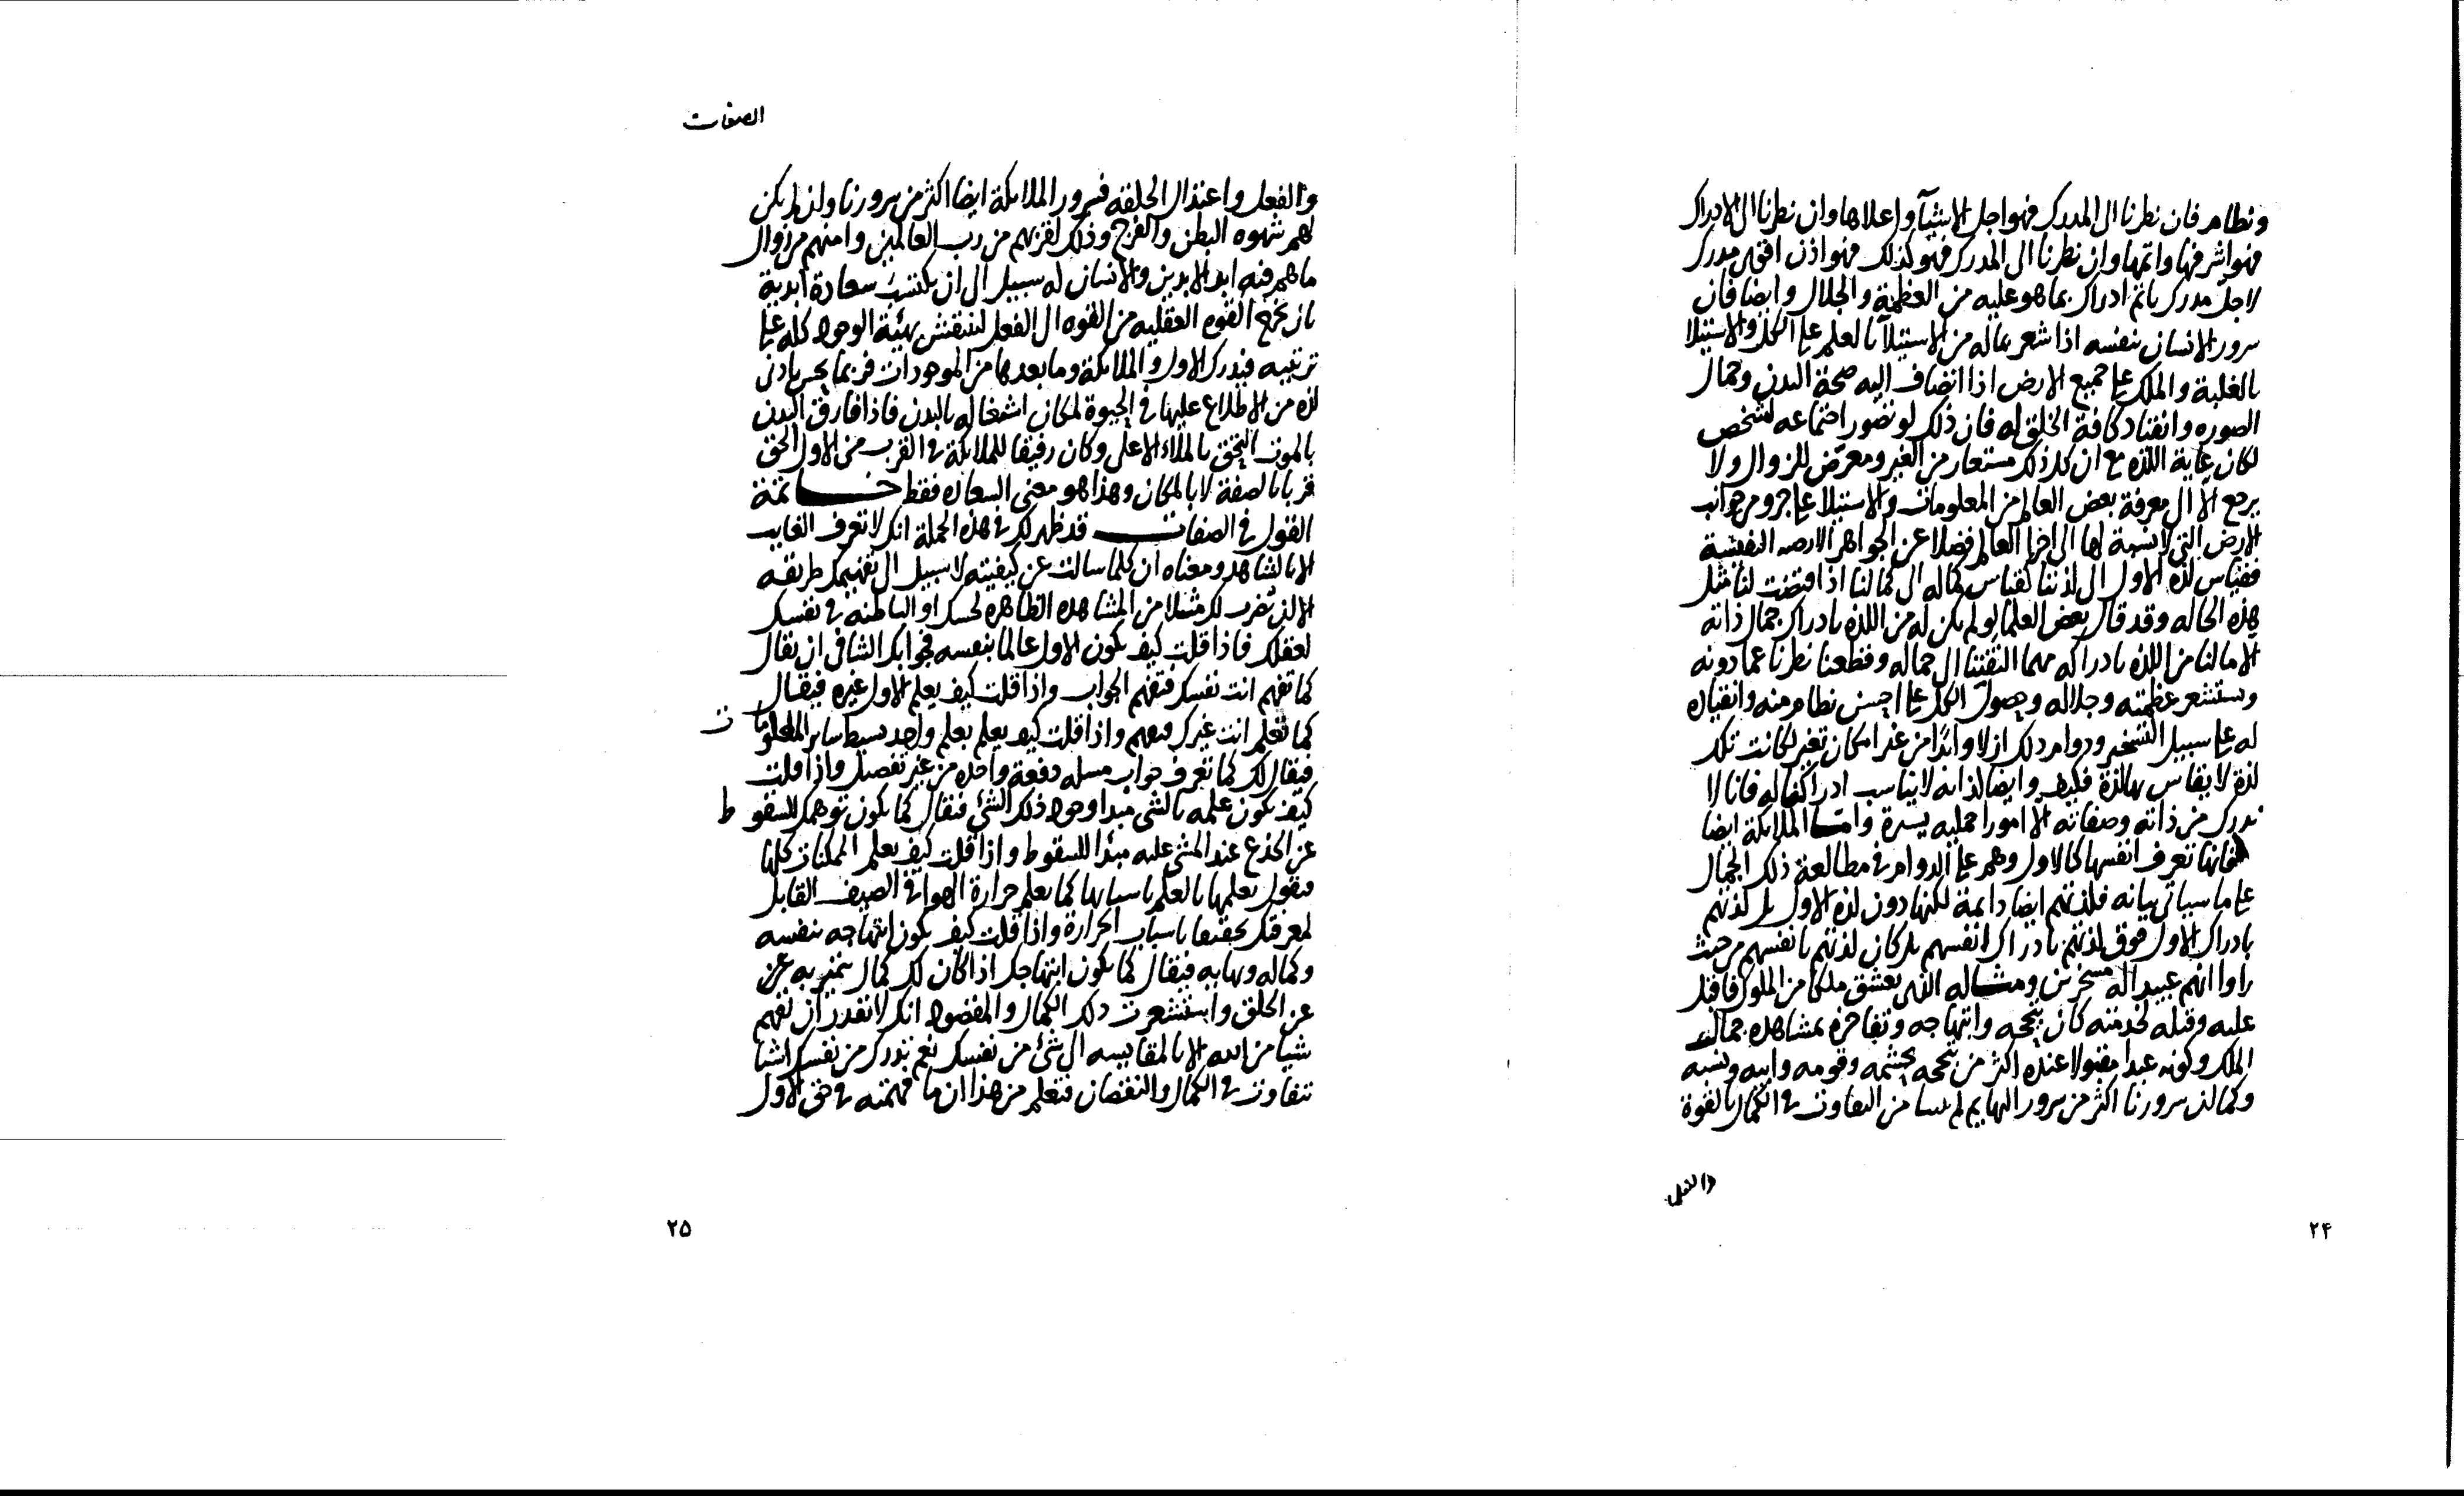 ونظام فان نظرنا الى المدرك فهو اجل الاشيآ واعلاها وان نظرنا الى الادراك
فهو اشرفها واتمها وان نظرنا الى المدرك فهو كذلك فهو اذن اقوى مدرك
لاجل مدرك باتم ادراك بما هو عليه من العظمة والجلال وايضا فان
سرور الانسان بنفسه اذا شعر بماله من الاستيلآ بالعلم على الكل والاستيلا
بالغلبة والملك على جميع الارض اذا انضاف اليه صحة البدن وجمال
الصوره وانقياد كافة الخلق له فان ذلك لو تصور اجتماعه لشخص
لكان غاية اللذه مع ان كل ذلك مستعار من الغير ومعرض للزوال ولا
يرجع الا الى معرفة بعض العالم من المعلومات والاستيلا على جزو من جوانب
الارض التي لا نسبة لها الى اجزا العالم فضلا عن الجواهر الارضيه النفيسة
فقياس لذه الاول الى لذتنا كقياس كماله الى كمالنا اذا اقتضت لنا مثل
هذه الحاله وقد قال بعض العلما لو لم يكن له من اللذه بادراك جمال ذاته
الا مالنا من اللذه بادراكه مهما التفتنا الى جماله وقطعنا نظرنا عما دونه
وستشعر عظمته وجلاله وحصول الكل على احسن نظام منه وانقياده
له على سبيل التسخير ودوام ذلك ازلا وابدًا من غير امكان تغير لكانت تلك
لذة لا يقاس بها لذة فكيف وايضا لذاته لا يناسب ادراكنا له فانا لا
ندرك من ذاته وصفاته الا امورا جمليه يسيرة وامـــا الملائكة ايضا
فانها تعرف انفسها كالاول وهم على الدوام في مطالعة ذلك الجمال
على ما سياتي بيانه فلذتهم ايضا دائمة لكنها دون لذه الاول بل لذتهم
بادراك الاول فوق لذتهم بادراك انفسهم بل كان لذتهم بانفسهم من حيث
راوا انهم عبيدا له مسخرين ومثـــاله الذى يعشق ملكا من الملوك فاقبل
عليه وقبله لخدمته كان تبجحه وابتهاجه وتفاخره بمشاهده جمال
الملك وكونه عبدا مقبولا عنده اكثر من تبجحه بحشمه وقومه وابيه ونسبه
وكما ان سرورنا اكثر من سرور البهايم لما بيننا من التفاوت في الكمال بالقوة
والفعل
۲۴
الصفات
والفعل واعتدال الخلقه فسرور الملائكة ايضا اكثر من سرورنا وان لم يكن
لهم شهوه البطن والفرج وذلك لقربهم من رب العالمين وامنهم من زوال
ما هم فيه ابد الابدين والانسان له سبيل الى ان يكتسب سعادة ابدية
بان يخرج القوه العقليه من القوه الى الفعل لتنتقش بهيئة الوجود كله على
ترتيبه فيدرك الاول والملائكة وما بعدها من الموجودات فربما يحس بادنى
لذه من الاطلاع عليها في الحيوة لمكان اشتغاله بالبدن فاذا فارق البدن
بالموت التحق بالملاء الاعلى وكان رفيقا للملائكة في القرب من الاول الحق
قربا بالصفة لا بالمكان وهذا هو معنى السعاده فقط خـــاتمة
القول في الصفات قد ظهر لك في هذه الجملة انك لا تعرف الغايب
الا بالشاهد ومعناه ان كلما سالت عن كيفيته لا سبيل الى تفهيمك طريقه
الا ان تضرب لك مثلا من المشاهده الظاهره لحسك او الباطنة في نفسك
لعقلك فاذا قلت كيف يكون الاول عالما بنفسه فجوابك الشافي ان يقال
كما تفهم انت نفسك فتفهم الجواب واذا قلت كيف يعلم الاول غيره فيقال
كما تعلم انت غيرك فتفهم واذا قلت كيف يعلم بعلم واحد بسيط سائر المعلومات
فيقال لك كما تعرف جواب مسله دفعة واحده من غير تفصيل واذا قلت
كيف يكون علمه بالشى مبدا وجود ذلك الشئ فيقال كما يكون توهمك للسقوط
عن الجذع عند المشى عليه مبدأ للسقوط واذا قلت كيف يعلم الممكنات كلها
فنقول يعلمها بالعلم باسبابها كما يعلم حرارة الهوا في الصيف القابل
لمعرفتك بحقيقة باسباب الحرارة واذا قلت كيف يكون ابتهاجه بنفسه
وكماله وبهايه فيقال كما يكون ابتهاجك اذا كان لك كمال يتميز به عن
عن الخلق واستشعرت ذلك الكمال والمقصود انك لا تقدر ان تفهم
شيا من الله الا بالمقايسه الى شئ من نفسك نعم تدرك من نفسك اشيا
تتفاوت في الكمال والنقصان فتعلم من هذا ان ما فهمته في حق الاول
۲۵